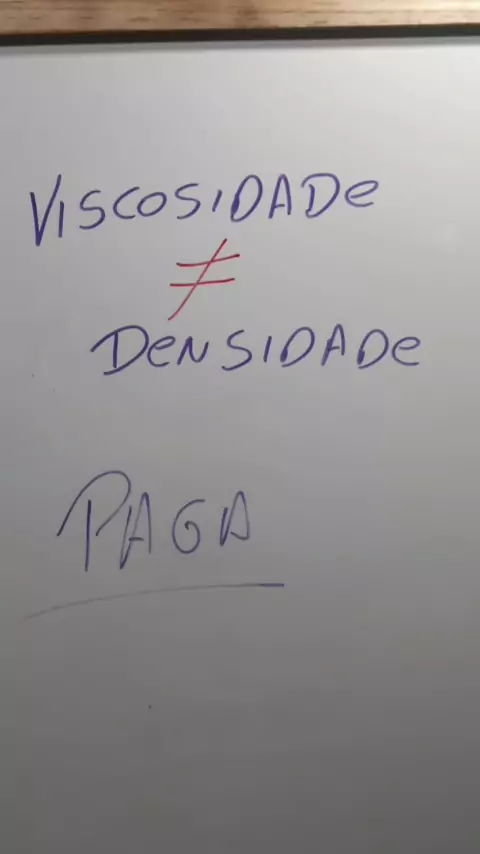 VISCOSIDADe
≠
DeNSIDADe
PAGA